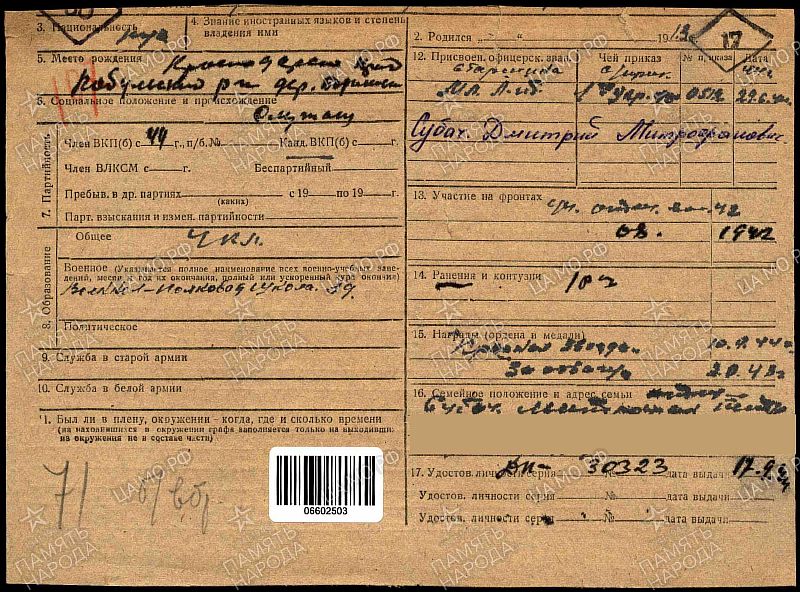 3. Национальность
4. Знание иностранных языков и степень
владения ими
5. Место рождения Краснодарский край
6. Социальное положение и происхождение
7. Партийность
Член ВКП(б) с 44 г., п/б.№ Канд. ВКП(б) с г.
Член ВЛКСМ с г. Беспартийный
Пребыв. в др. партиях с 19 по 19 г.
(каких)
Парт. взыскания и измен. партийности
8. Образование
Общее 4 кл.
Военное (Указывается полное наименование всех военно-учебных заве-
дений, месяц и год их окончания, полный или ускоренный курс окончил)
Полковая школа 39
Политическое
9. Служба в старой армии
10. Служба в белой армии
1. Был ли в плену, окружении - когда, где и сколько времени
(на находившихся в окружении графа заполняется только на выходивш.
из окружения не в составе части)
71
06602503
2. Родился „ “ 1913
17
12. Присвоен. офицерск. зван. Чей приказ № приказа Дата
старшина
Мл. л-т. 1 Укр. ф 0512
Субач Дмитрий Митрофанович
13. Участие на фронтах
42
08. 1942
14. Ранения и контузии
15. Награды (ордена и медали)
Красная Звезда
За отвагу
16. Семейное положение и адрес семьи
Субач
17. Удостов. личности серия № 30323 дата выдачи 17.9.44
Удостов. личности серия № дата выдачи
Удостов. личности серия № дата выдачи
ПАМЯТЬ НАРОДА
ЦАМО.РФ